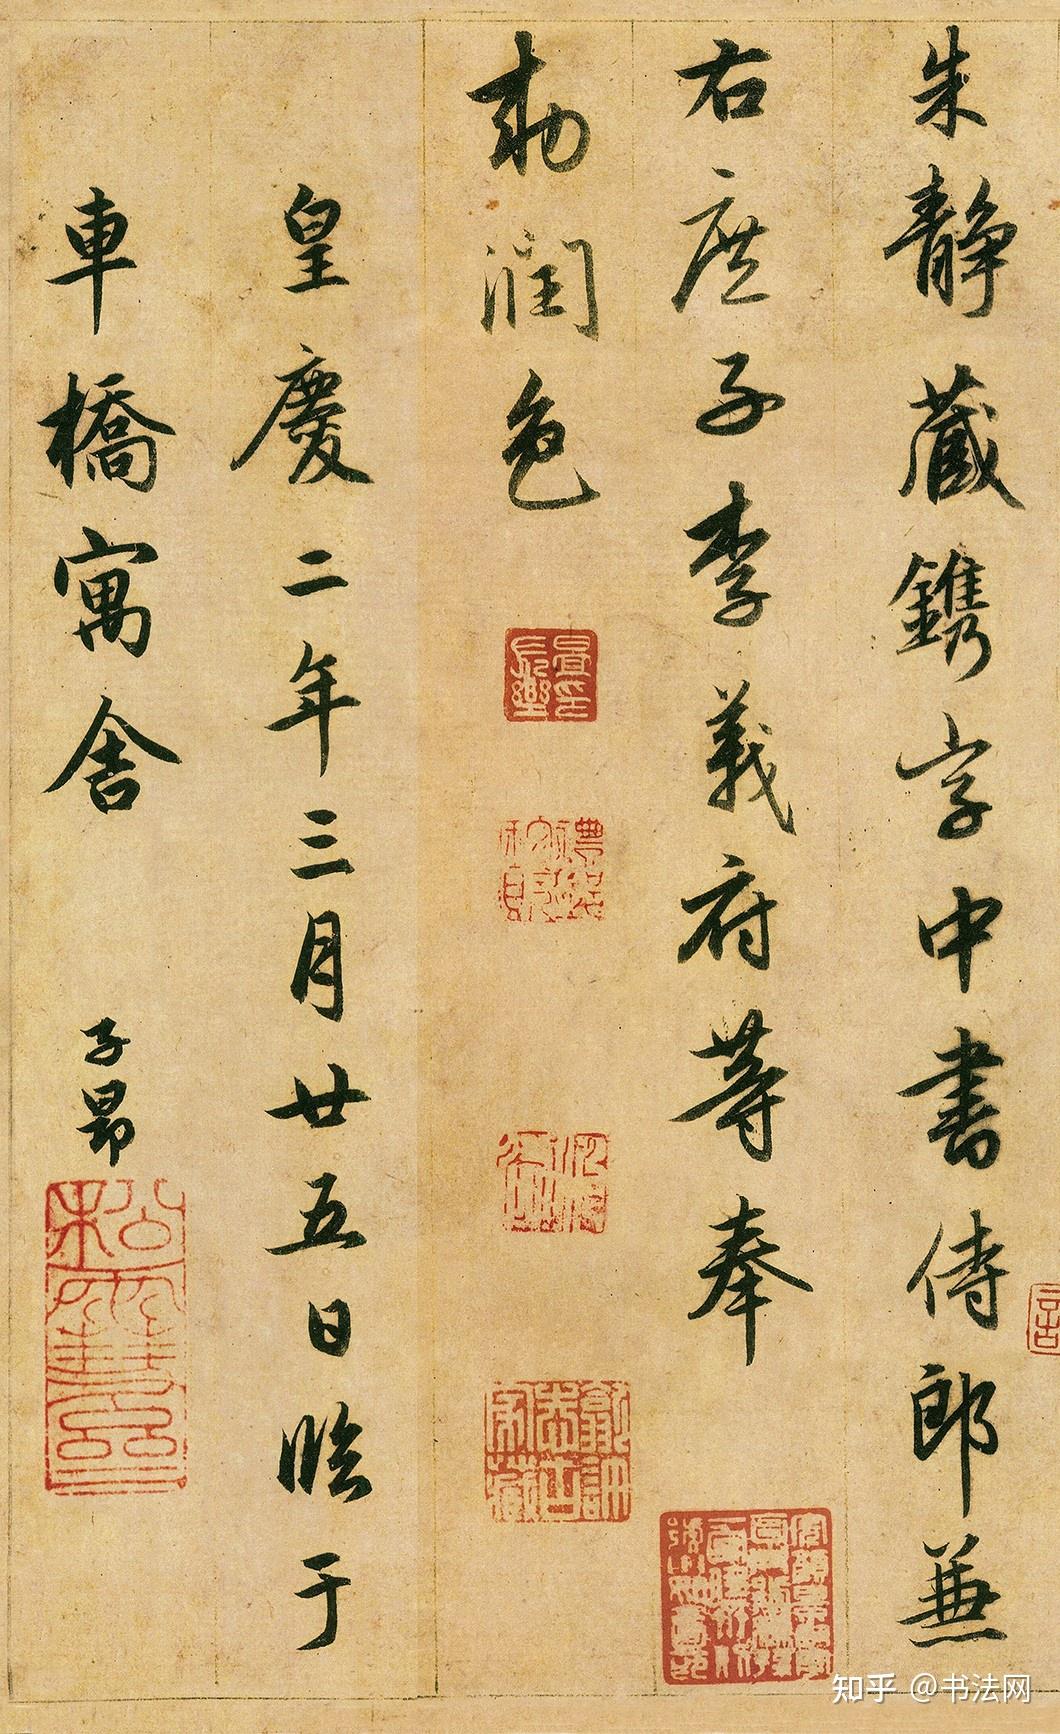 朱静藏鐫字中書侍郎兼
右庶子李義府等奉
勑潤色
皇慶二年三月廿五日臨于
車橋寓舍
子昂
知乎 @书法网